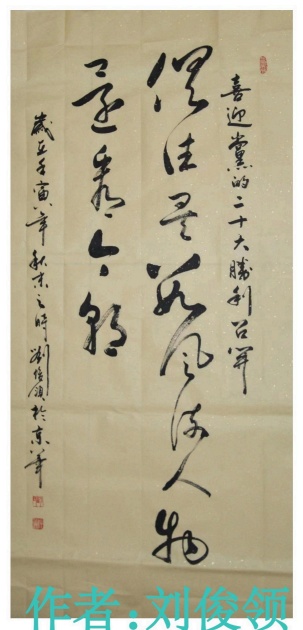 喜迎黨的二十大勝利召開
俱往矣数風流人物
還看今朝
歲在壬寅年秋末之時劉俊領於京華
作者:刘俊领